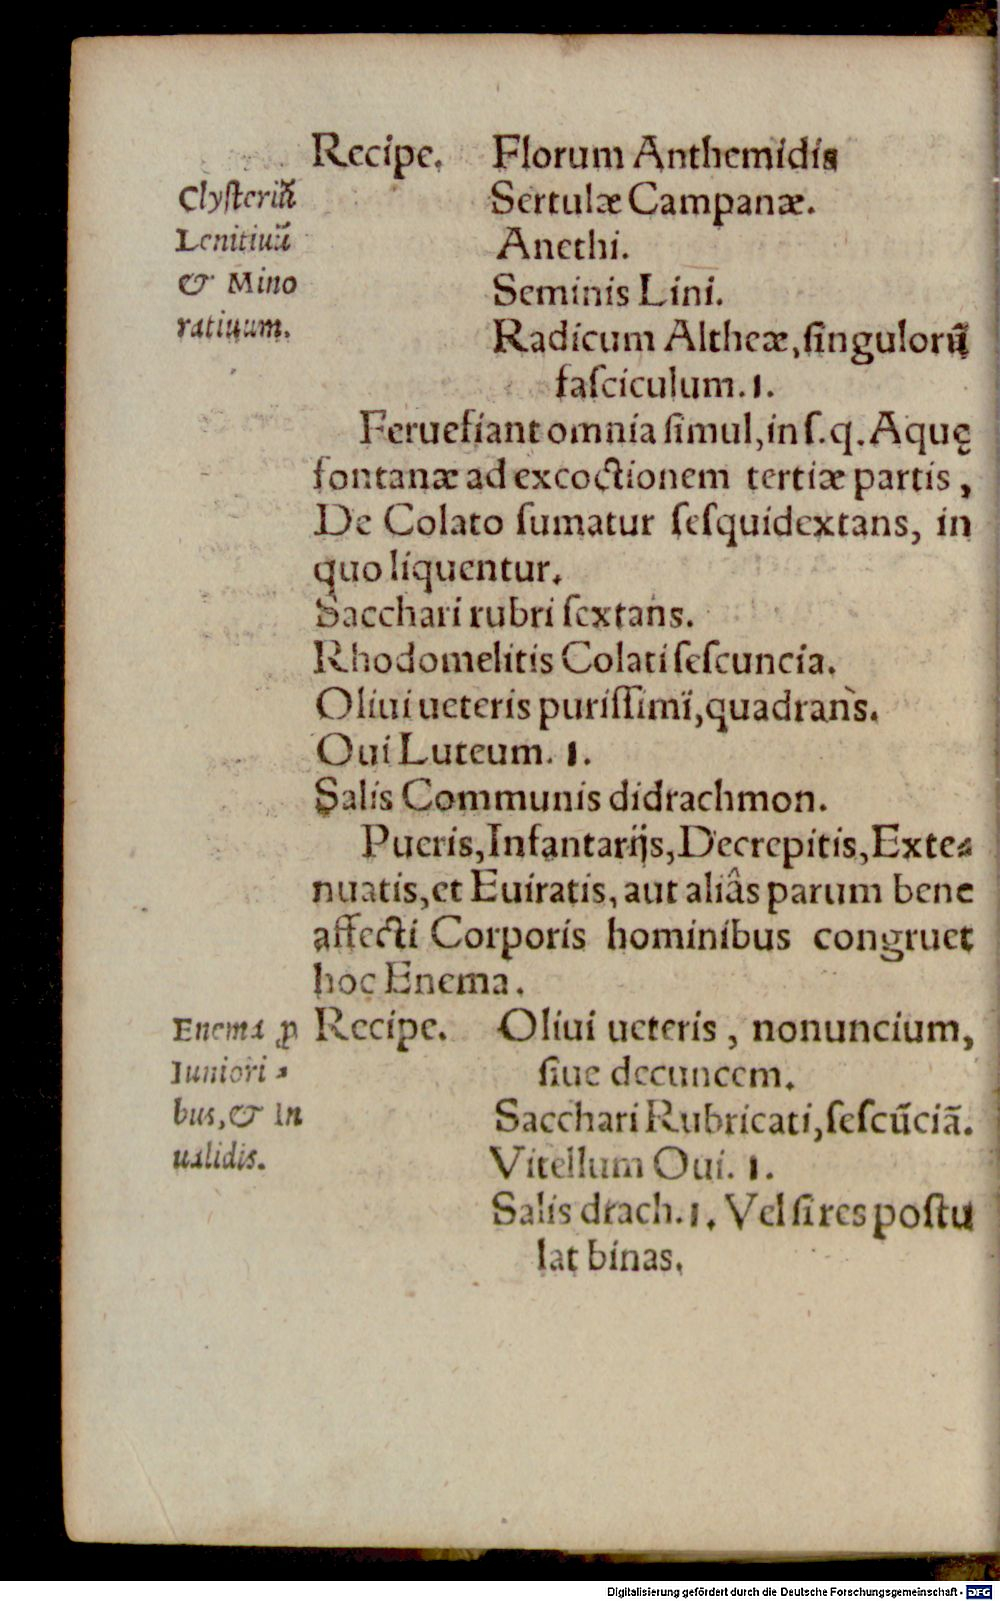 Recipe. Florum Anthemidis
Clyſteriũ
Lenitiuũ
& Mino
ratiuum.
Sertulæ Campanæ.
Anethi.
Seminis Lini.
Radicum Altheæ, ſingulorũ
faſciculum. 1.
Feruefiant omnia ſimul, in ſ. q. Aquę
fontanæ ad excoctionem tertiæ partis,
De Colato ſumatur ſeſquidextans, in
quo liquentur.
Sacchari rubri ſextans.
Rhodomelitis Colati ſeſcuncia.
Oliui ueteris puriſſimi, quadrans.
Oui Luteum. 1.
Salis Communis didrachmon.
Pueris, Infantarijs, Decrepitis, Exte⸗
nuatis, et Euiratis, aut aliâs parum bene
affecti Corporis hominibus congruet
hoc Enema.
Enema ꝓ
Iuniori⸗
bus, & In
ualidis.
Recipe. Oliui ueteris, nonuncium,
ſiue decuncem.
Sacchari Rubricati, ſeſcũciã.
Vitellum Oui. 1.
Salis drach. 1. Vel ſi res poſtu
lat binas.
Digitalisierung gefördert durch die Deutsche Forschungsgemeinschaft - DFG